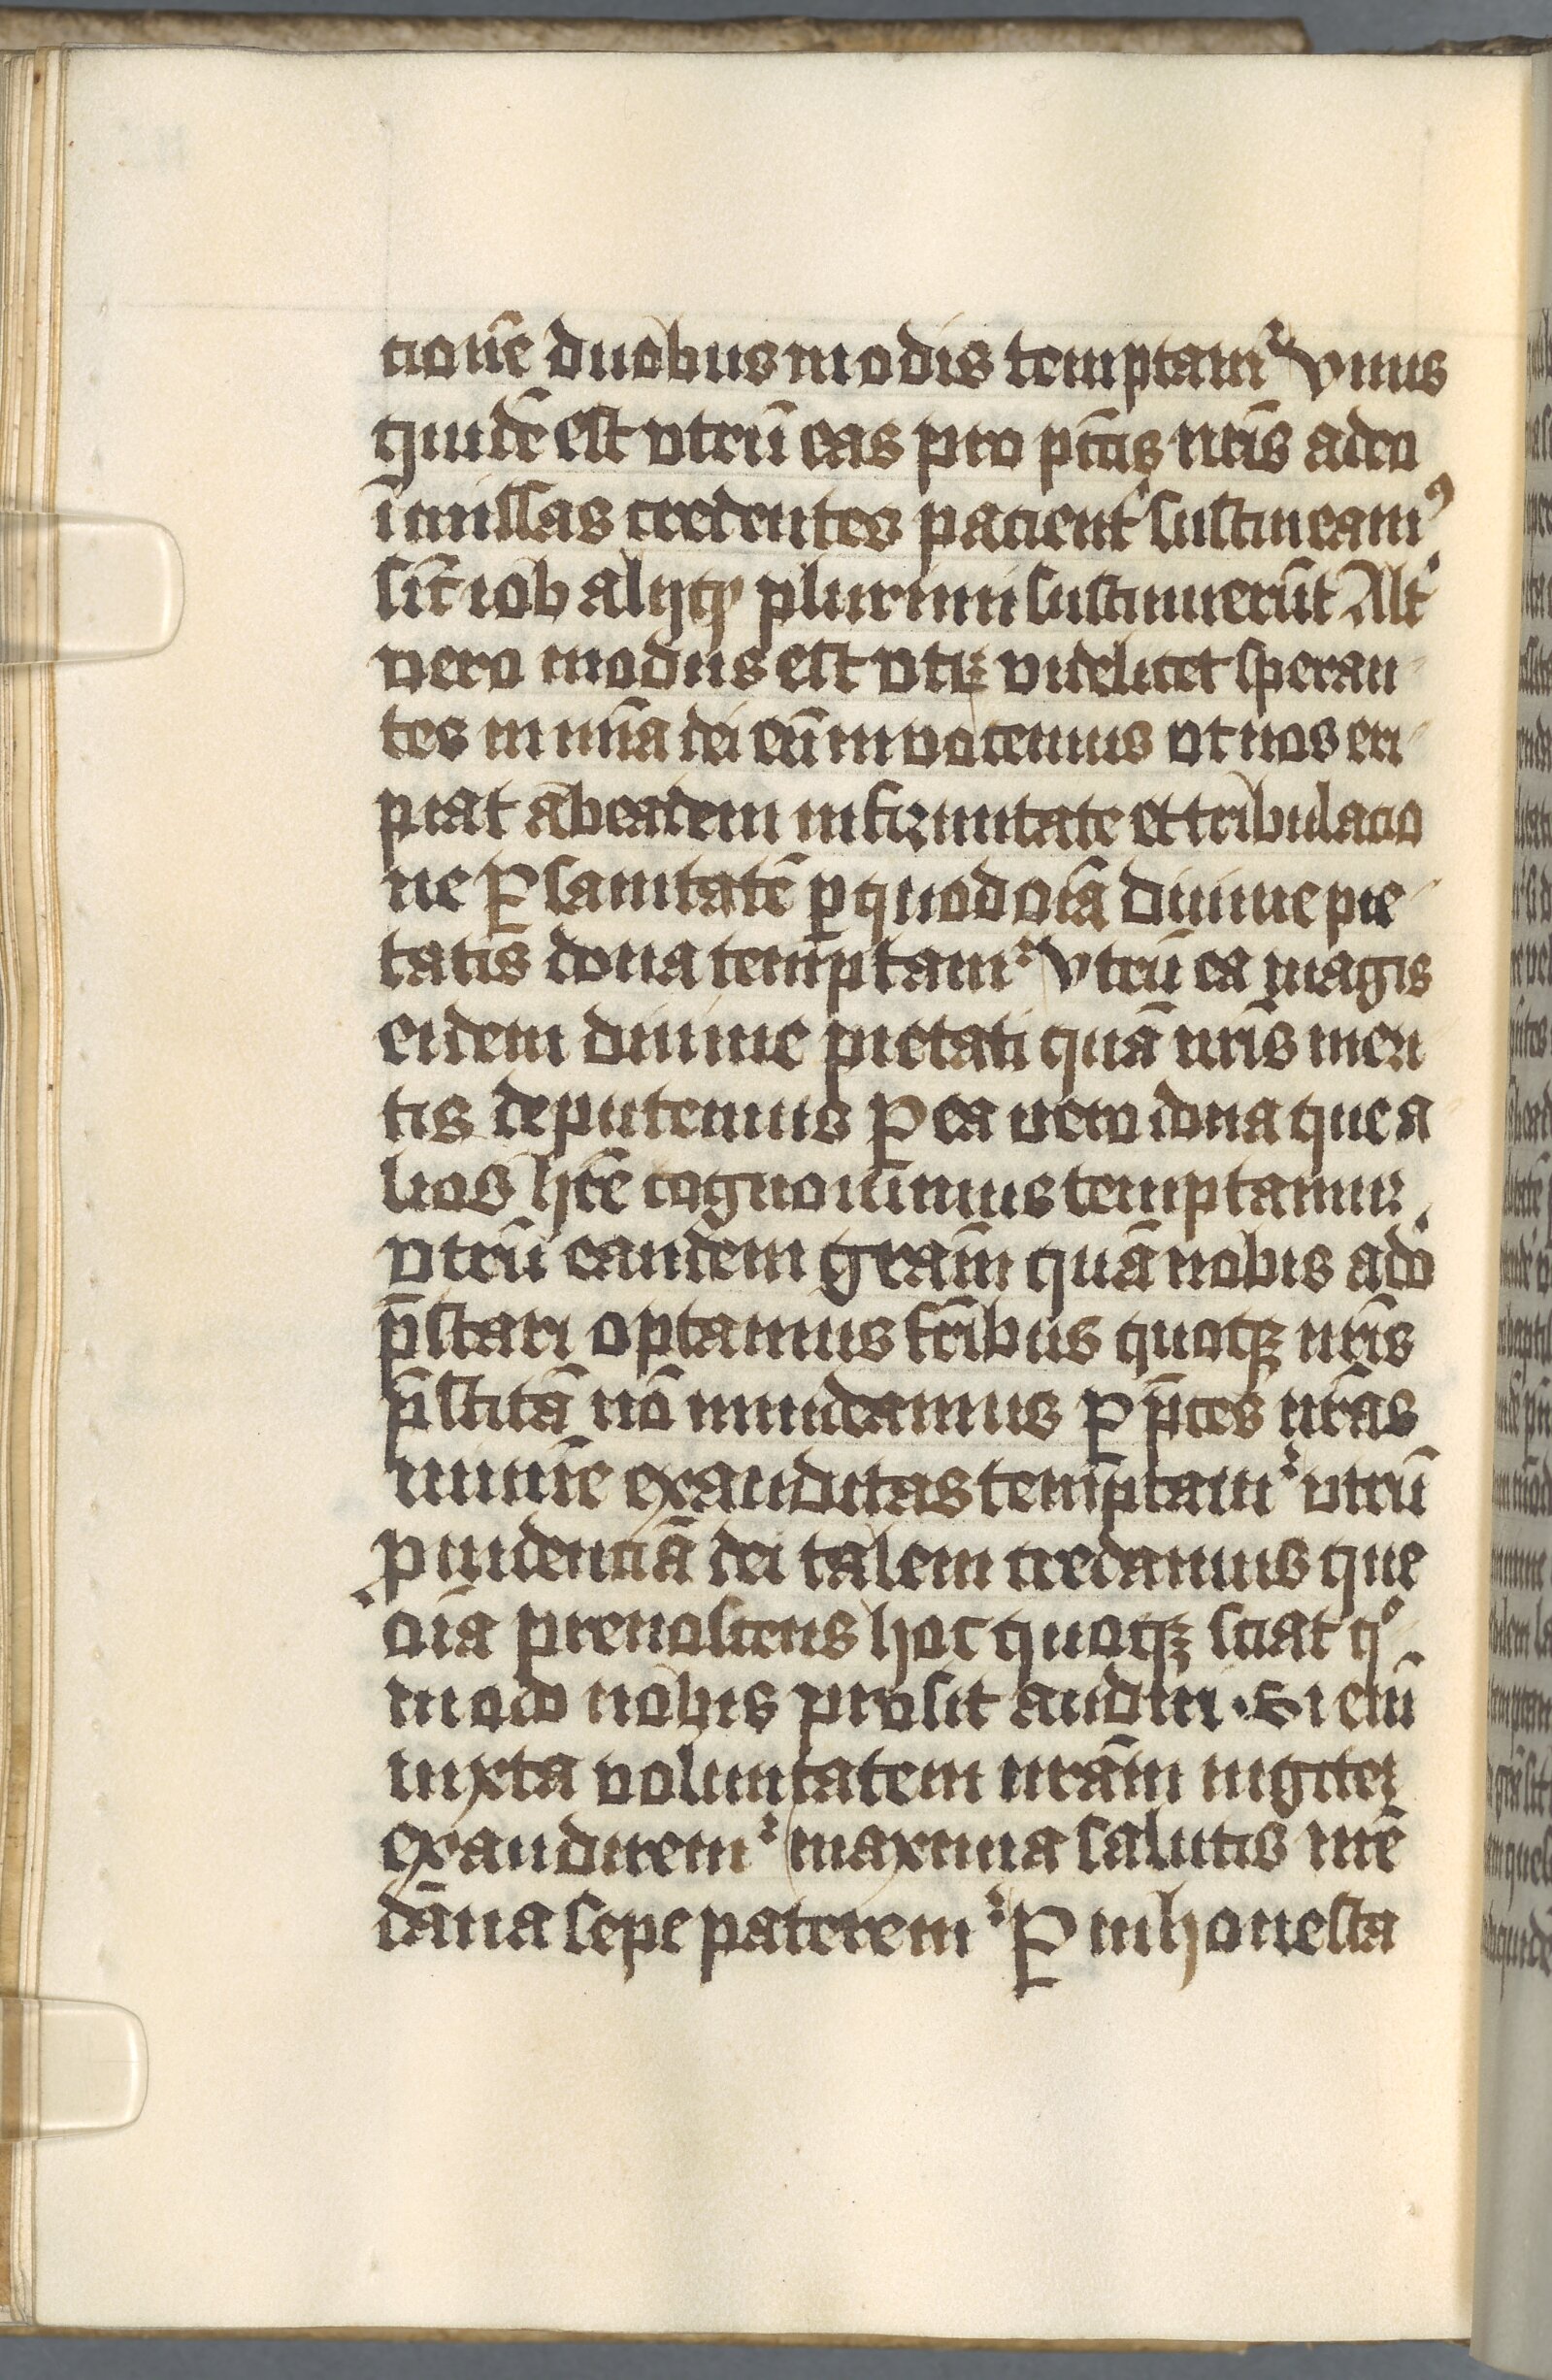 cionē duobus modis temptamᷣ Vnus
quidē est vtrū eas pro pctīs nrīs a deo
īmissas credentes pacientˀ sustineamꝰ
sic̄ iob alijqꝫ plurimi sustinuerūt Altˀ
vero modus est vtꝝ videlicet speran
tes in mīa dei eū inuocemus vt nos eri
piat ab eadem infirmitate et tribulacio
ne Per sanitatē ꝑ quod oīa diuine pie
tatis dona temptamᷣ Vtrū ea magis
eidem diuine pietati quā nrīs meri
tis deputemus Per ea vero dona que a
lios hr̄e cognouimus temptamur
vtrū eandem grām quā nobis a do
p̄stari optamus frībus quoqꝫ nrīs
p̄stitā nō inuideamus Per p̄ces nrās
minīe exauditas temptamᷣ vtrū
prudenciā dei talem credamus que
oīa prenoscens hoc quoqꝫ sciat qͦ
modo nobis prosit audiri . Si enī
iuxta voluntatem nrām iugiter
exauditremᷣ maxima salutis nrē
dāna sepe pateremᷣ Per inhonesta